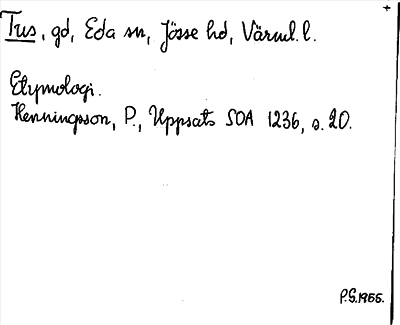 Tus, gd, Eda sn, Jösse hd, Värml. l.
Etymologi.
Henningsson, P., Uppsats SOA 1236, s. 20.
P.S. 1966.